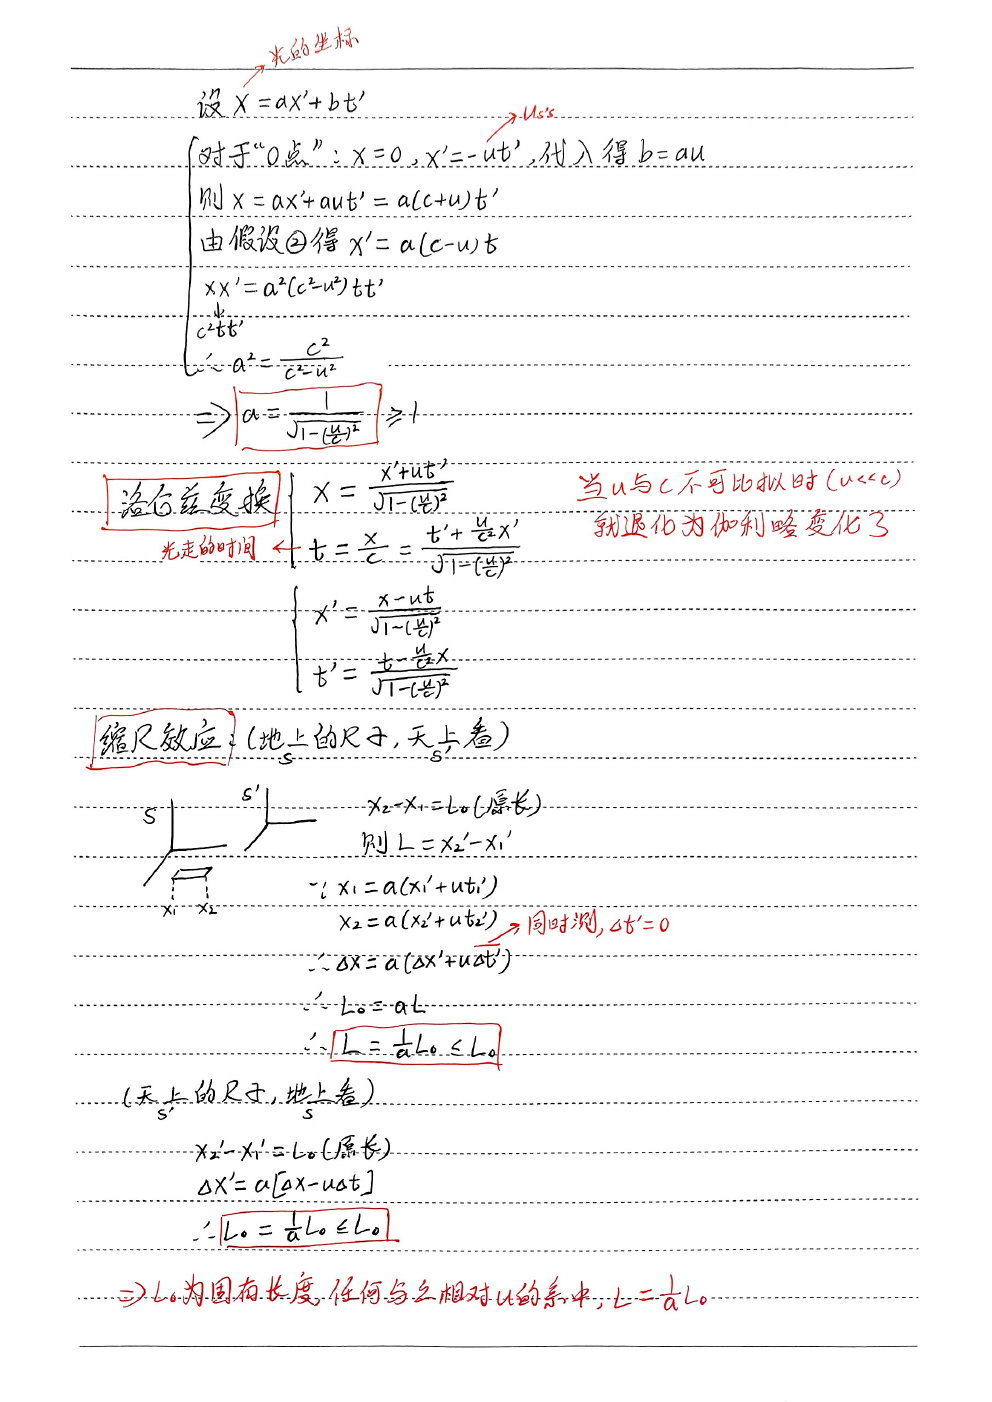 光的坐标
设 x = ax' + bt'
u s's
对于“0点”: x=0, x'=-ut', 代入得 b=au
则 x = ax'+aut' = a(c+u)t'
由假设②得 x' = a(c-u)t
xx' = a²(c²-u²)tt'
↓
c²tt'
∴ a² = c²/(c²-u²)
=> a = 1/√(1-(u/c)²) ≥ 1
洛仑兹变换 { x = (x'+ut')/√(1-(u/c)²)
当u与c不可比拟时(u<<c)
就退化为伽利略变化了
光走的时间 ← t = x/c = (t'+(u/c²)x')/√(1-(u/c)²)
{ x' = (x-ut)/√(1-(u/c)²)
t' = (t-(u/c²)x)/√(1-(u/c)²)
缩尺效应: (地上的尺子, 天上看)
S S'
S S'
x₂-x₁=L₀(原长)
则 L=x₂'-x₁'
x₁ x₂
∵ x₁=a(x₁'+ut₁')
x₂=a(x₂'+ut₂')
→ 同时测, Δt'=0
∴ Δx=a(Δx'+uΔt')
∴ L₀=aL
∴ L = 1/a L₀ ≤ L₀
(天上的尺子, 地上看)
S' S
x₂'-x₁'=L₀(原长)
Δx'=a[Δx-uΔt]
∴ L₀ = 1/a L₀ ≤ L₀
=> L₀为固有长度, 任何与之相对u的系中, L = 1/a L₀